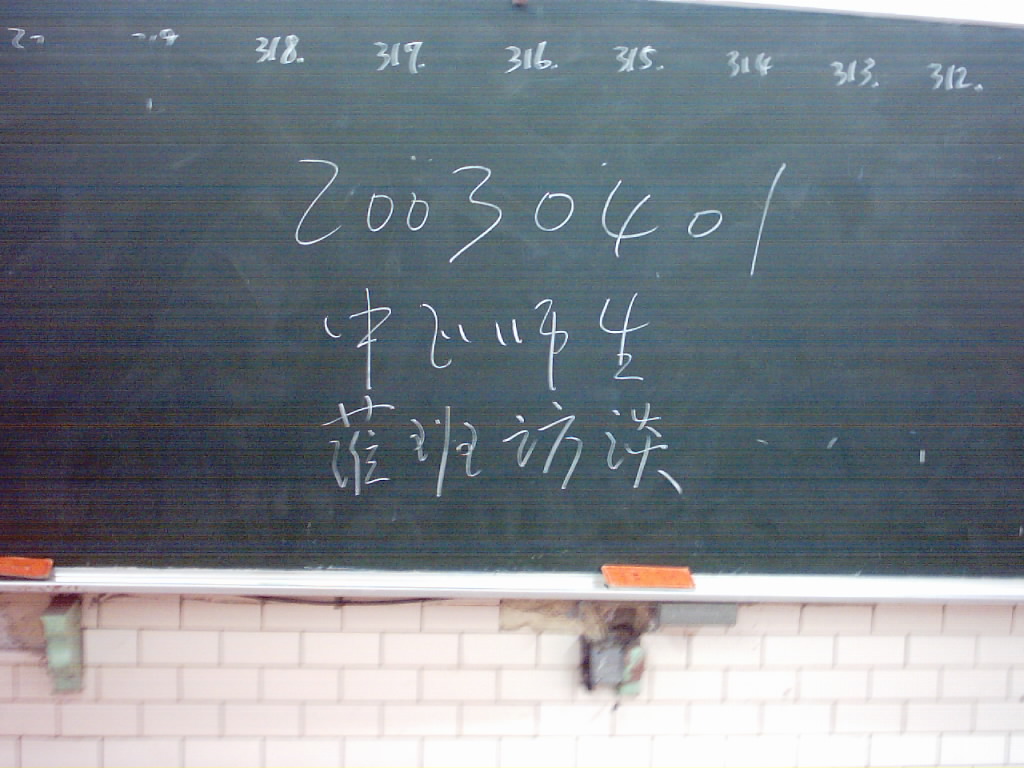 318. 317. 316. 315. 314 313. 312.
20030401
中正师生
蘿班访谈